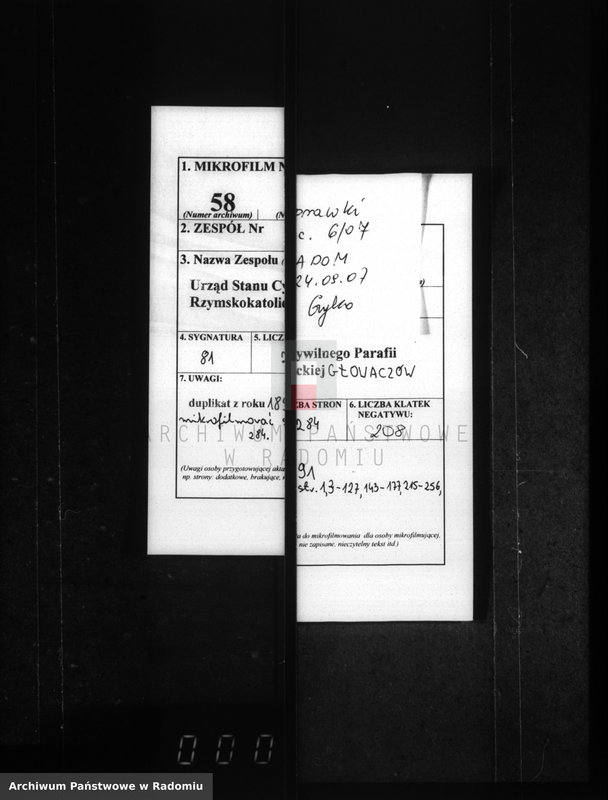 1. MIKROFILM N
58
(Numer archiwum) (N
2. ZESPÓŁ Nr
3. Nazwa Zespołu
Urząd Stanu Cy
Rzymskokatolic
4. SYGNATURA 5. LICZ
81
7. UWAGI:
duplikat z roku 189
mikrofilmować s
284.
(Uwagi osoby przygotowującej akta
np. strony: dodatkowe, brakujące, n
prawki
c. 6/07
ADOM
24.09.07
ywilnego Parafii
ckiej GŁOVACZÓW
ZBA STRON 6. LICZBA KLATEK
NEGATYWU:
284 208
91
str. 1,3-127, 143-177, 215-256,
ta do mikrofilmowania dla osoby mikrofilmującej,
nie zapisane, nieczytelny tekst itd.)
ARCHIWUM PAŃSTWOWE
W RADOMIU
000
Archiwum Państwowe w Radomiu